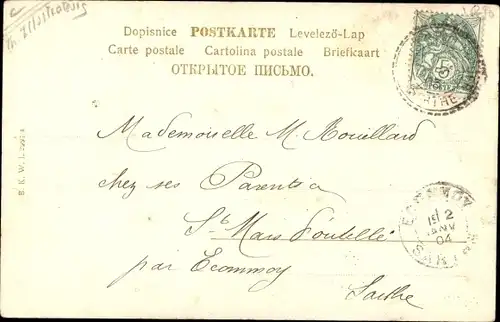 Dopisnice POSTKARTE Levelező-Lap
Carte postale Cartolina postale Briefkaart
ОТКРЫТОЕ ПИСЬМО.
Mademoiselle M. Rouillard
chez ses Parents à
St Mars d'outillé
par Ecommoy
Sarthe
ECOMMOY
12
JANV
04
SARTHE
5